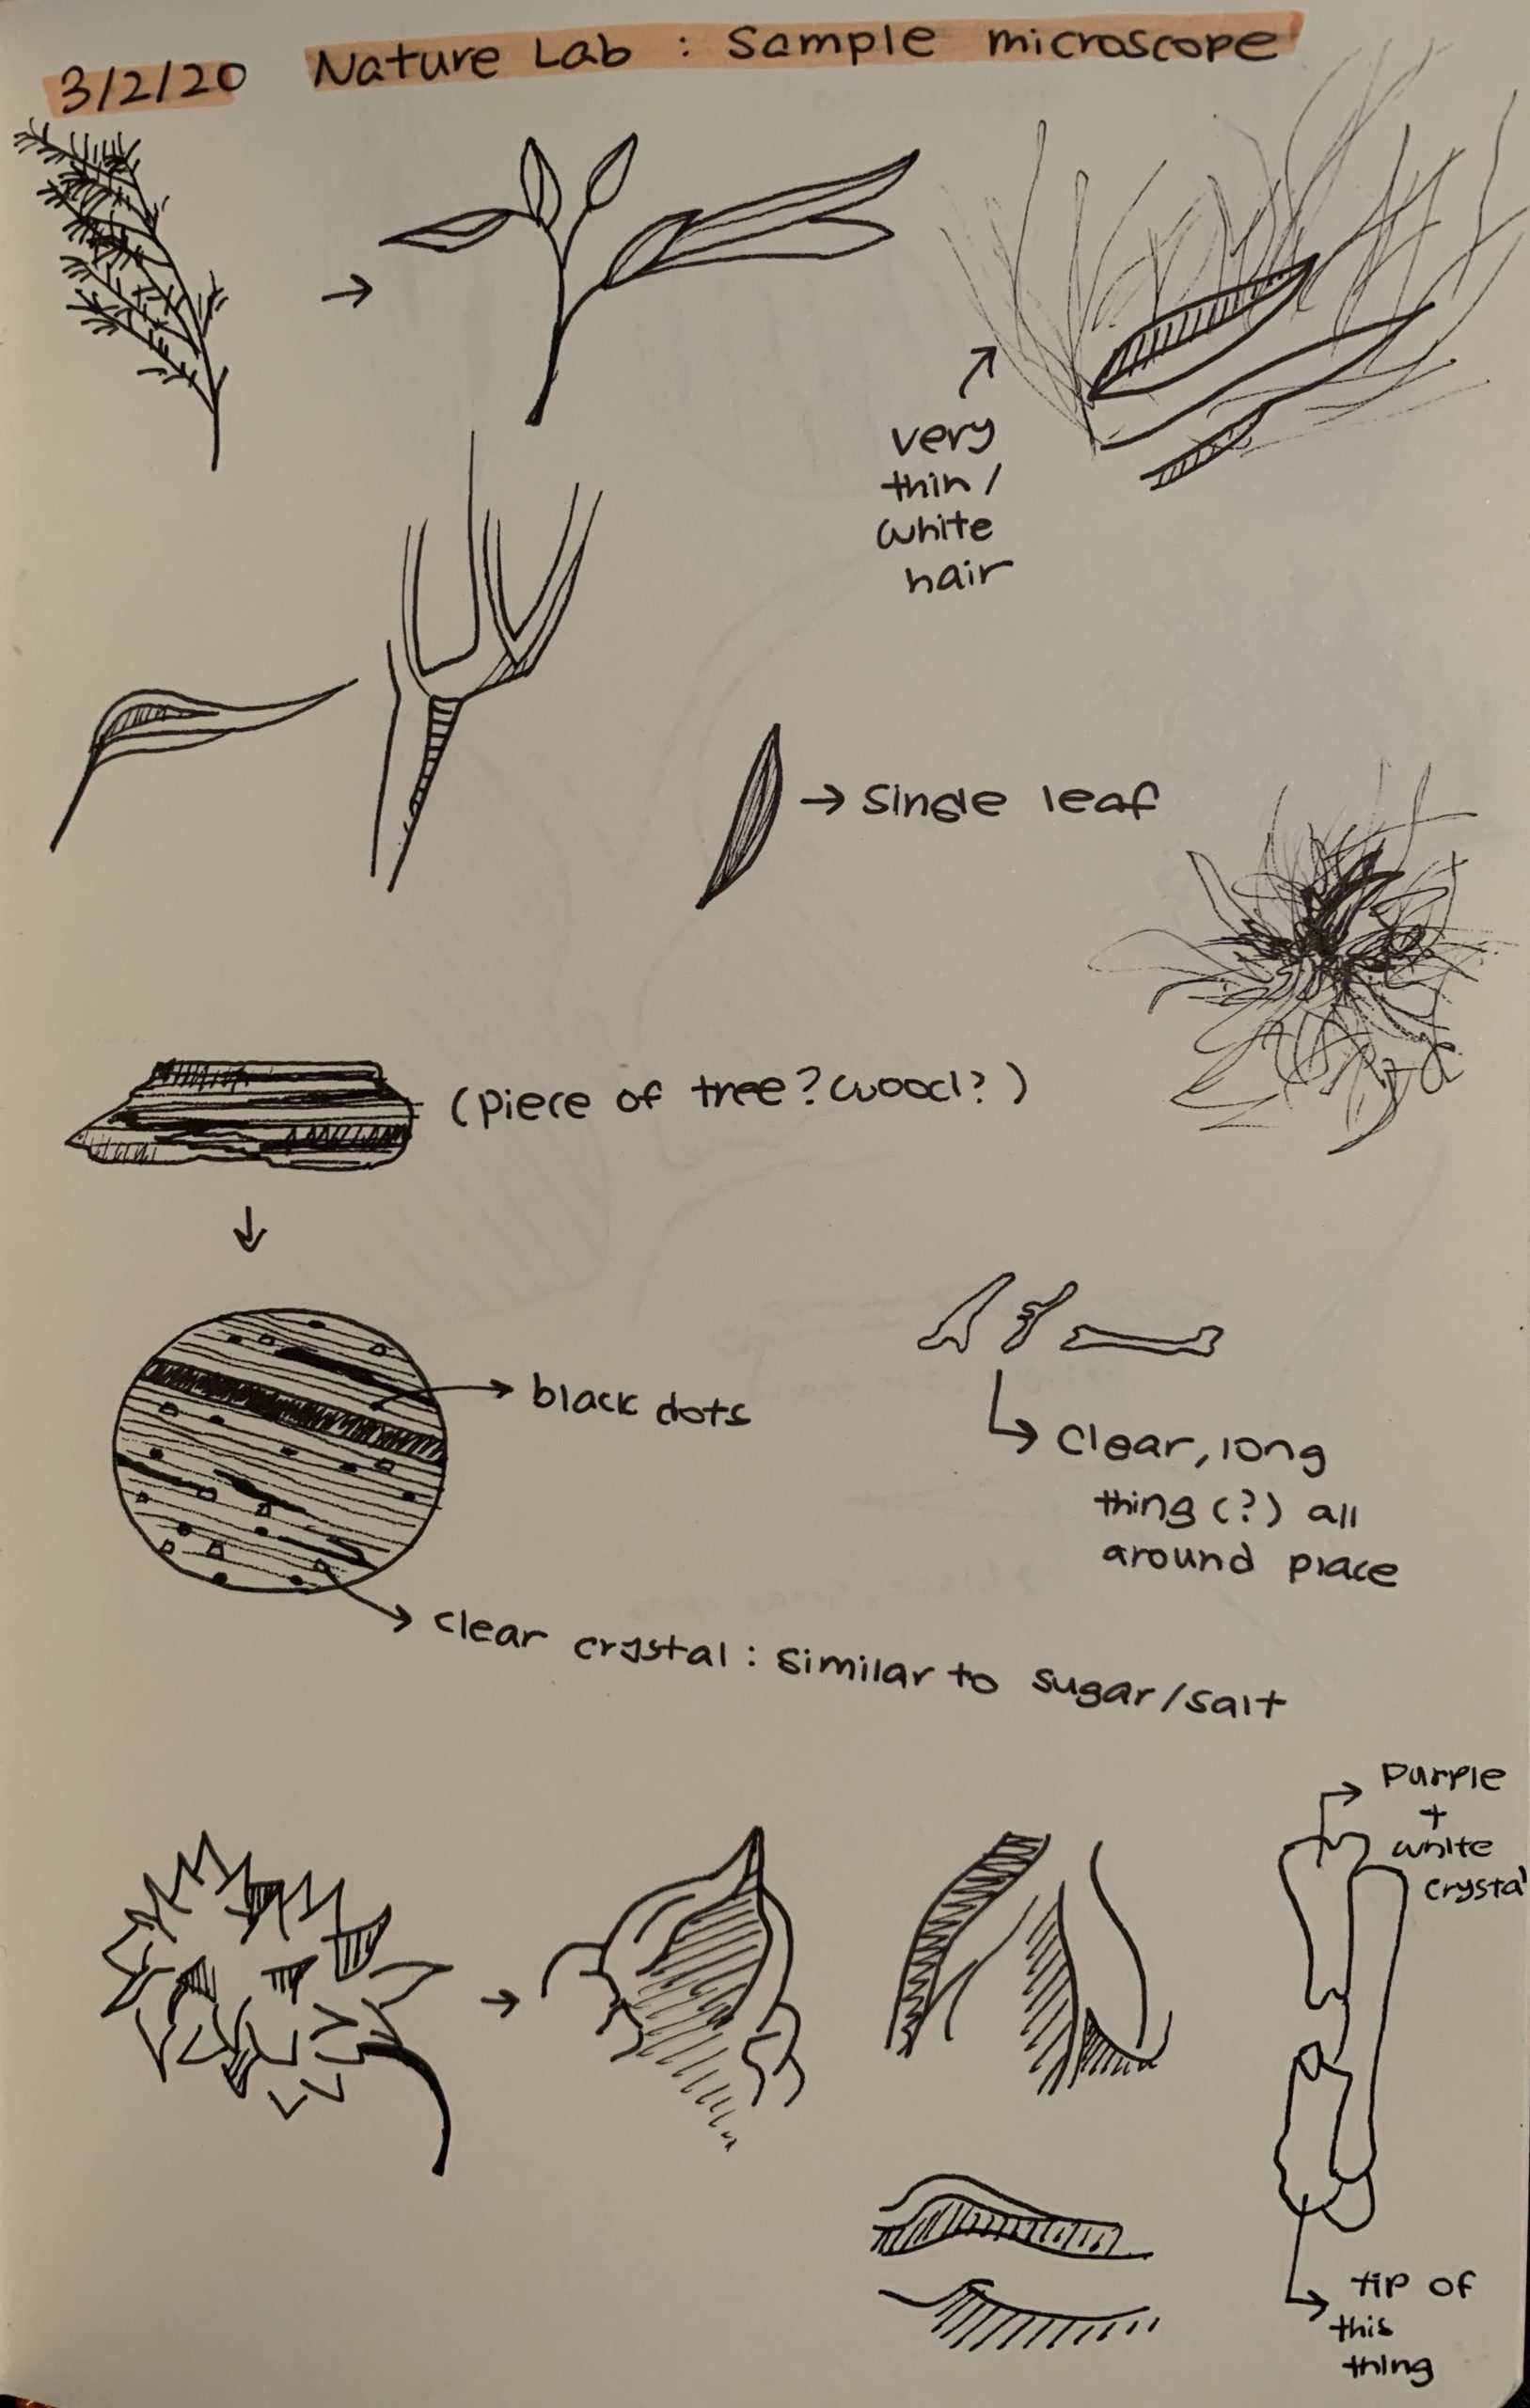 3/2/20 Nature Lab : Sample microscope
very
thin/
white
hair
→ Single leaf
(piece of tree? wood?)
black dots
clear, long
thing (?) all
around place
clear crystal : Similar to sugar/salt
Purple
+
white
crystal
tip of
this
thing